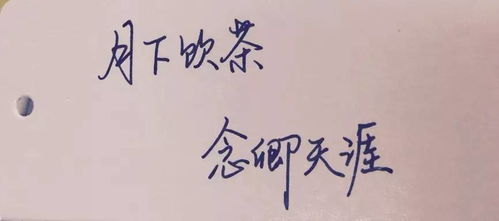 月下饮茶
念卿天涯